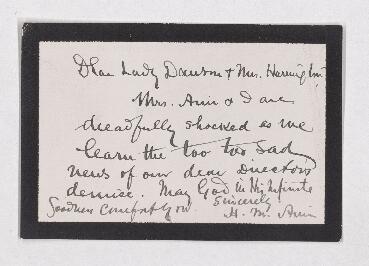 Dear Lady Dawson & Mr. Harrington
Mrs. Ami & I are
dreadfully shocked as we
learn the too too sad
news of our dear Directors
demise. May God in His Infinite
Goodness comfort you. Sincerely
H. M. Ami